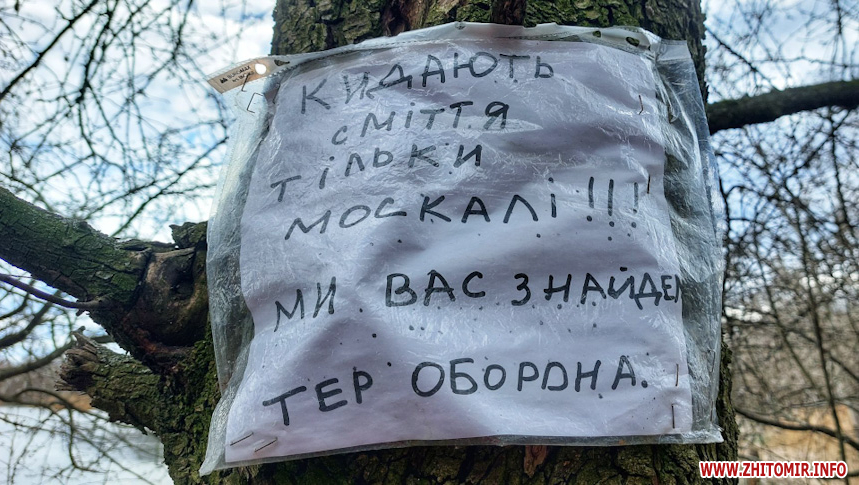 КИДАЮТЬ
СМІТТЯ
ТІЛЬКИ
МОСКАЛІ!!!
МИ ВАС ЗНАЙДЕМ
ТЕР ОБОРОНА.
WWW.ZHITOMIR.INFO